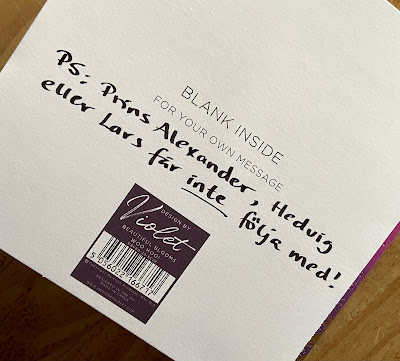 BLANK INSIDE
FOR YOUR OWN MESSAGE
PS: Prins Alexander, Hedvig
eller Lars får inte följa med!
DESIGN BY
Violet
BEAUTIFUL BLOOMS
WOO HOO!